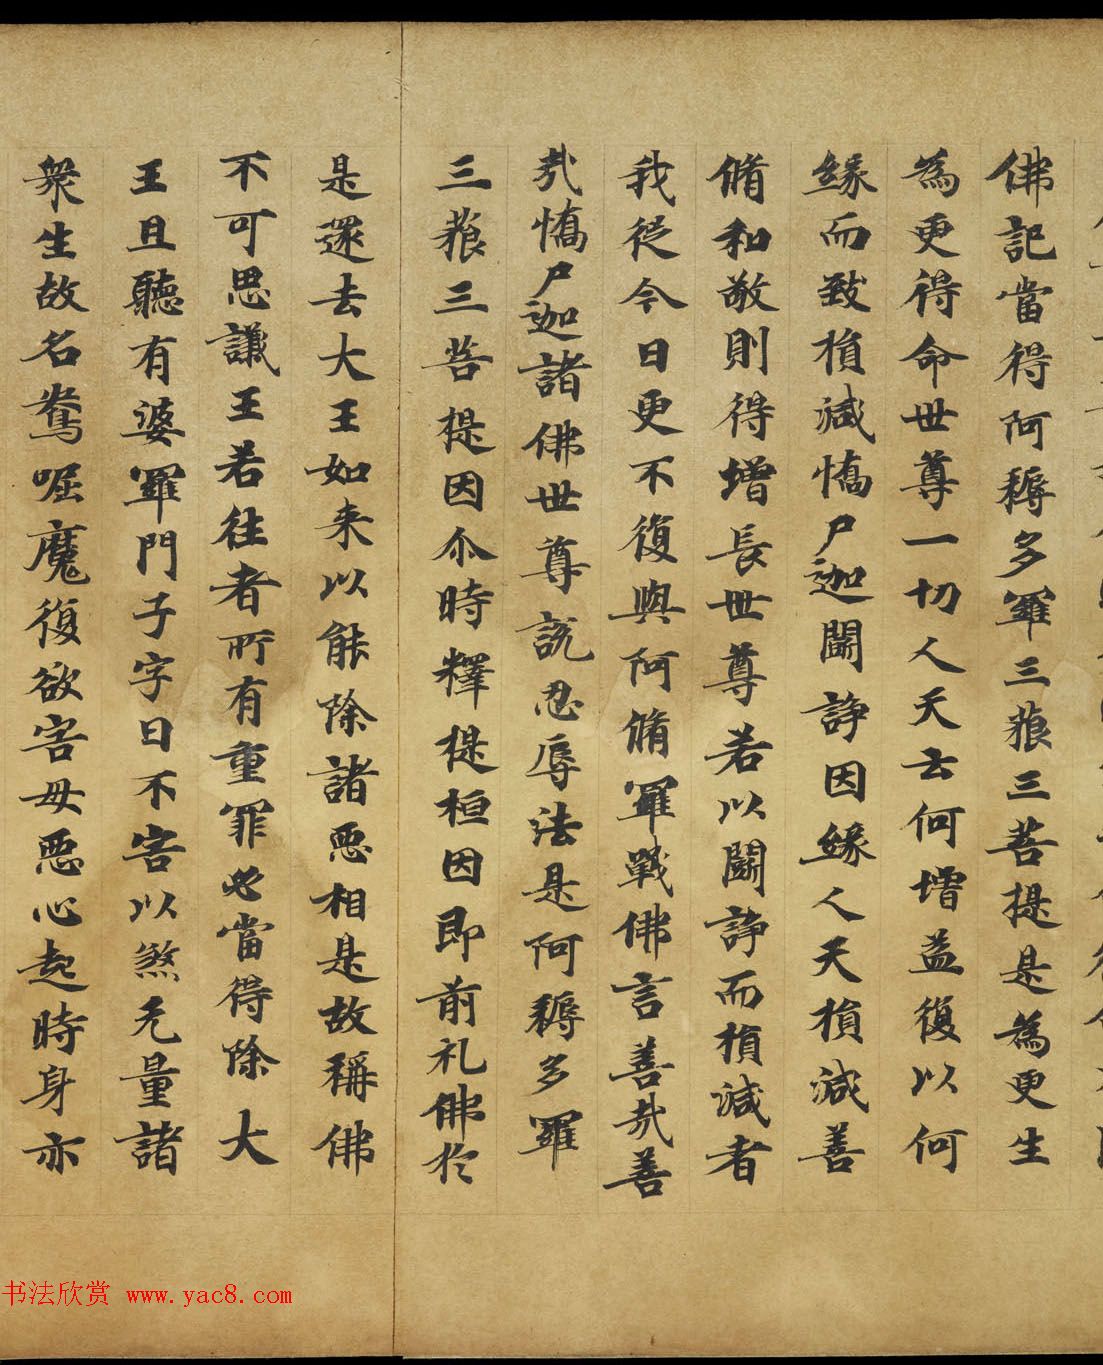 佛記當得阿耨多羅三藐三菩提是為更生
為更得命世尊一切人天云何增益復以何
緣而致損減憍尸迦鬪諍因緣人天損減善
脩和敬則得增長世尊若以鬪諍而損減者
我從今日更不復與阿脩羅戰佛言善哉善
哉憍尸迦諸佛世尊說忍辱法是阿耨多羅
三藐三菩提因尒時釋提桓因即前礼佛於
是還去大王如来以能除諸惡相是故稱佛
不可思議王若往者所有重罪必當得除大
王且聽有婆羅門子字曰不害以煞无量諸
衆生故名鴦崛魔復欲害母惡心起時身亦
书法欣赏 www.yac8.com